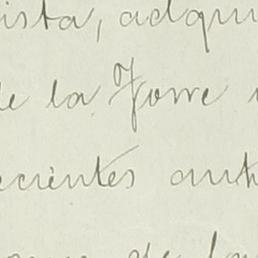 ista, adqui
de la Torre
ecientes anti
de la